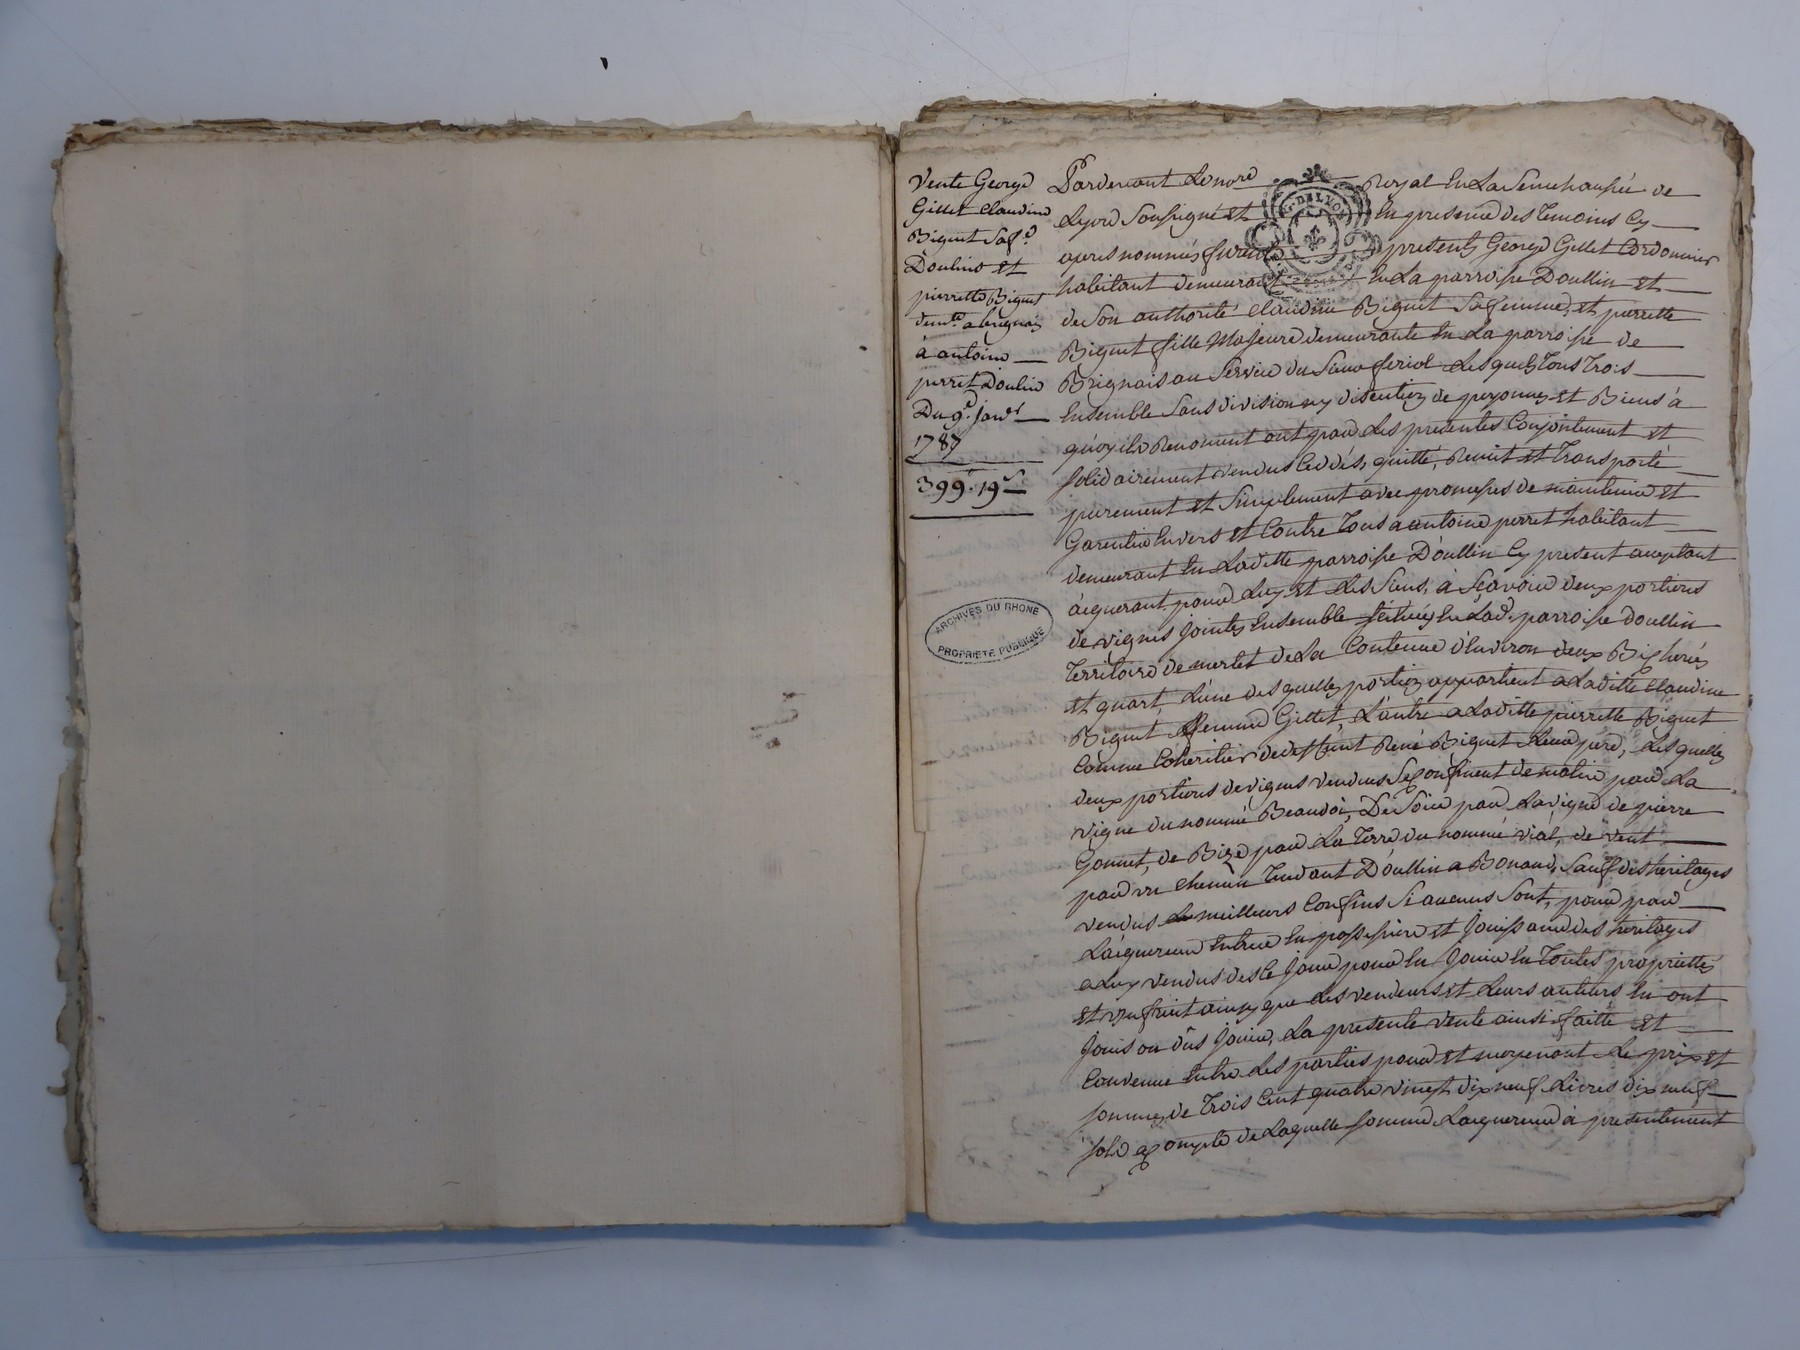 Vente George
Gillet Claudine
Biguet Sa f.e
Doulins et
pierrette Biguet
dem.te a brignais
à antoine
perret Doulins
Du 9.e janv.r
1787
399.ᵗ 19.ˢ
ARCHIVES DU RHONE
PROPRIETE PUBLIQUE
G. DE LYON
Pardevant Le no.re Royal En La Senechaussée de
Lyon Soussigné et En presence des Temoins Cy
apres nommés furent presents George Gillet Cordonnier
habitant demeurant En La parroisse Doullin et
de Son authorité Claudine Biguet Sa femme, et pierrette
Biguet fille Majeure demeurante En La parroisse de
Brignais au Service du Sieur feriol Lesquels Tous Trois
Ensemble Sans division ny discution de personnes et Biens à
quoy ils Renoncent ont par Les presentes Conjointement et
Solidairement vendus Ceddés, quitté, Remit et Transporté
purement et Simplement avec promesses de maintenir et
Garentir Envers et Contre Tous a antoine perret habitant
demeurant En Laditte parroisse D'oullin Cy present acceptant
aiquerant pour Luy et Les Siens, à Sçavoir deux portions
de vignes Jointes Ensemble Scituées En Lad. parroisse doullin
Territoire de merlet de La Contenue d'Environ deux Bicherés
et quart, L'une des quelles portions appartient a Laditte Claudine
Biguet femme Gillet, L'autre a Laditte pierrette Biguet
Comme Coheritier de deffunt René Biguet Leur pere, Les quelles
deux portions de vignes vendues Se Confinent de matin par La
vigne du nommé Beaudoi, De Soir par La vigne de pierre
Gonnet, de Bize par La Terre du nommé vial, de vent
par un chemin Tendant D'oullin a Bonand, Sauf des heritages
vendus Le meilleurs Confins Si aucuns Sont, pour par
L'aiquereur Entrer En possession et Jouissance des heritages
a Luy vendus des Ce Jour pour En Jouir En Toutes proprietté
et usufruit ainsy que Les vendeurs et Leurs auteurs En ont
Jouis ou dûs Jouir, La presente vente ainsi faitte et
Convenue Entre Les parties pour et moyenant Le prix et
Somme de Trois Cent quatre vingt dix neuf Livres dix neuf
Sols a Compte de Laquelle Somme L'aiquereur à presentement